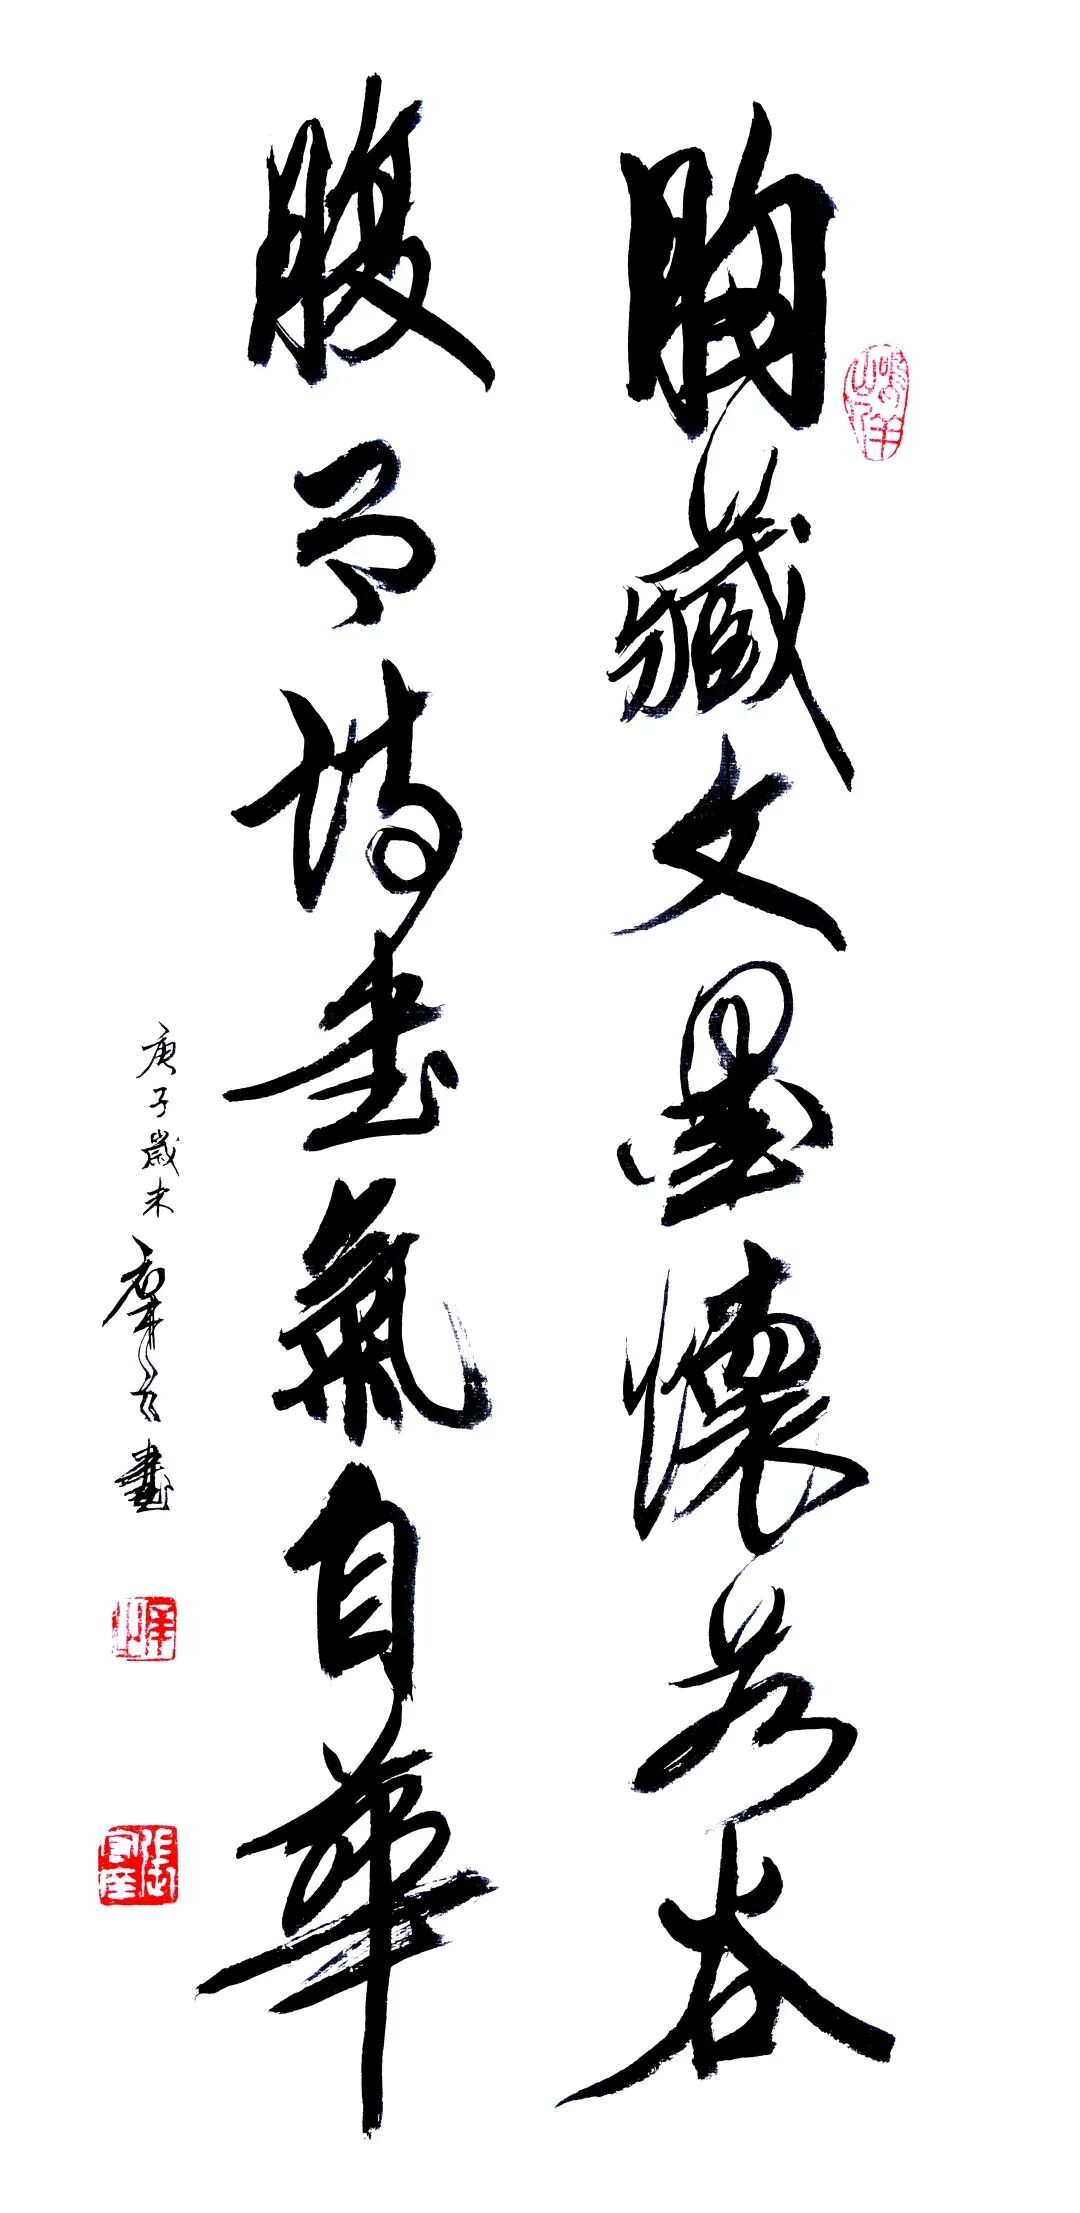 胸藏文墨懷若谷
腹有詩書氣自華
庚子歲末 羣 書